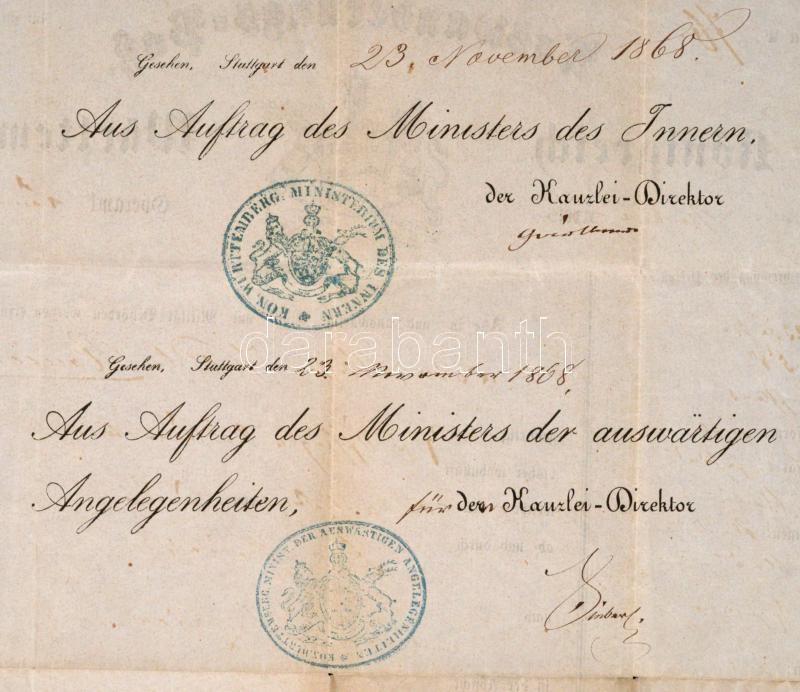 Gesehen, Stuttgart den 23. November 1868.
Aus Auftrag des Ministers des Innern,
der Kanzlei-Direktor
KÖN. WÜRTTEMBERG. MINISTERIUM DES INNERN
darabanth
Gesehen, Stuttgart den 23. November 1868,
Aus Auftrag des Ministers der auswärtigen
Angelegenheiten, für den Kanzlei-Direktor
KÖN. WÜRTTEMBERG MINIST. DER AUSWÄRTIGEN ANGELEGENHEITEN